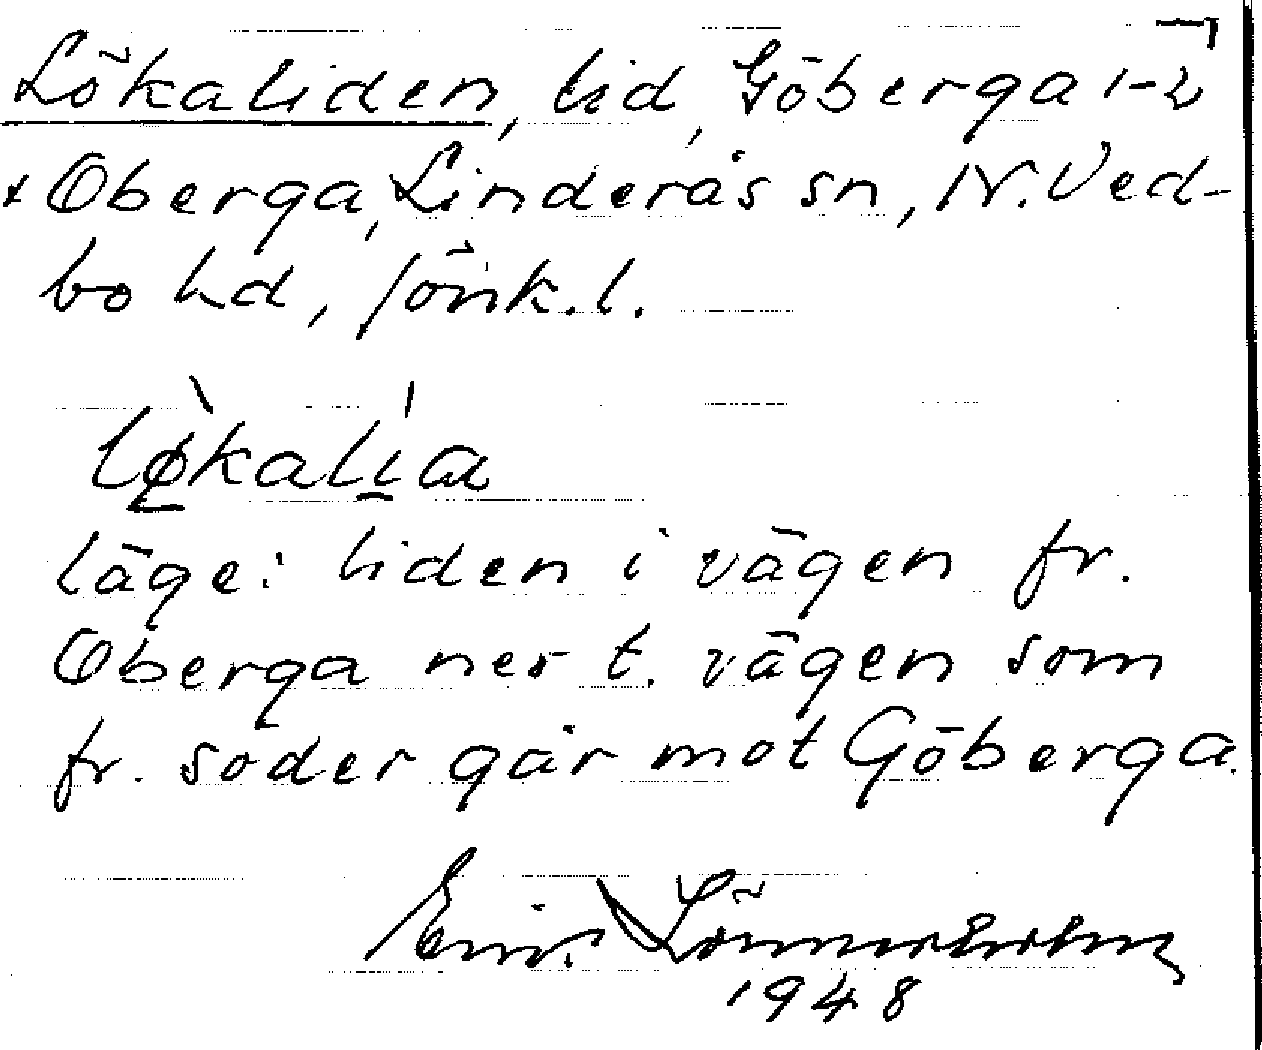 Lökaliden, lid, Göberga 1-2
× Oberga, Linderås sn, N. Ved-
bo hd, Jönk. l.
lø̀kalía
läge: liden i vägen fr.
Oberga ner t. vägen som
fr. söder går mot Göberga.
Einar Lönnerholm
1948